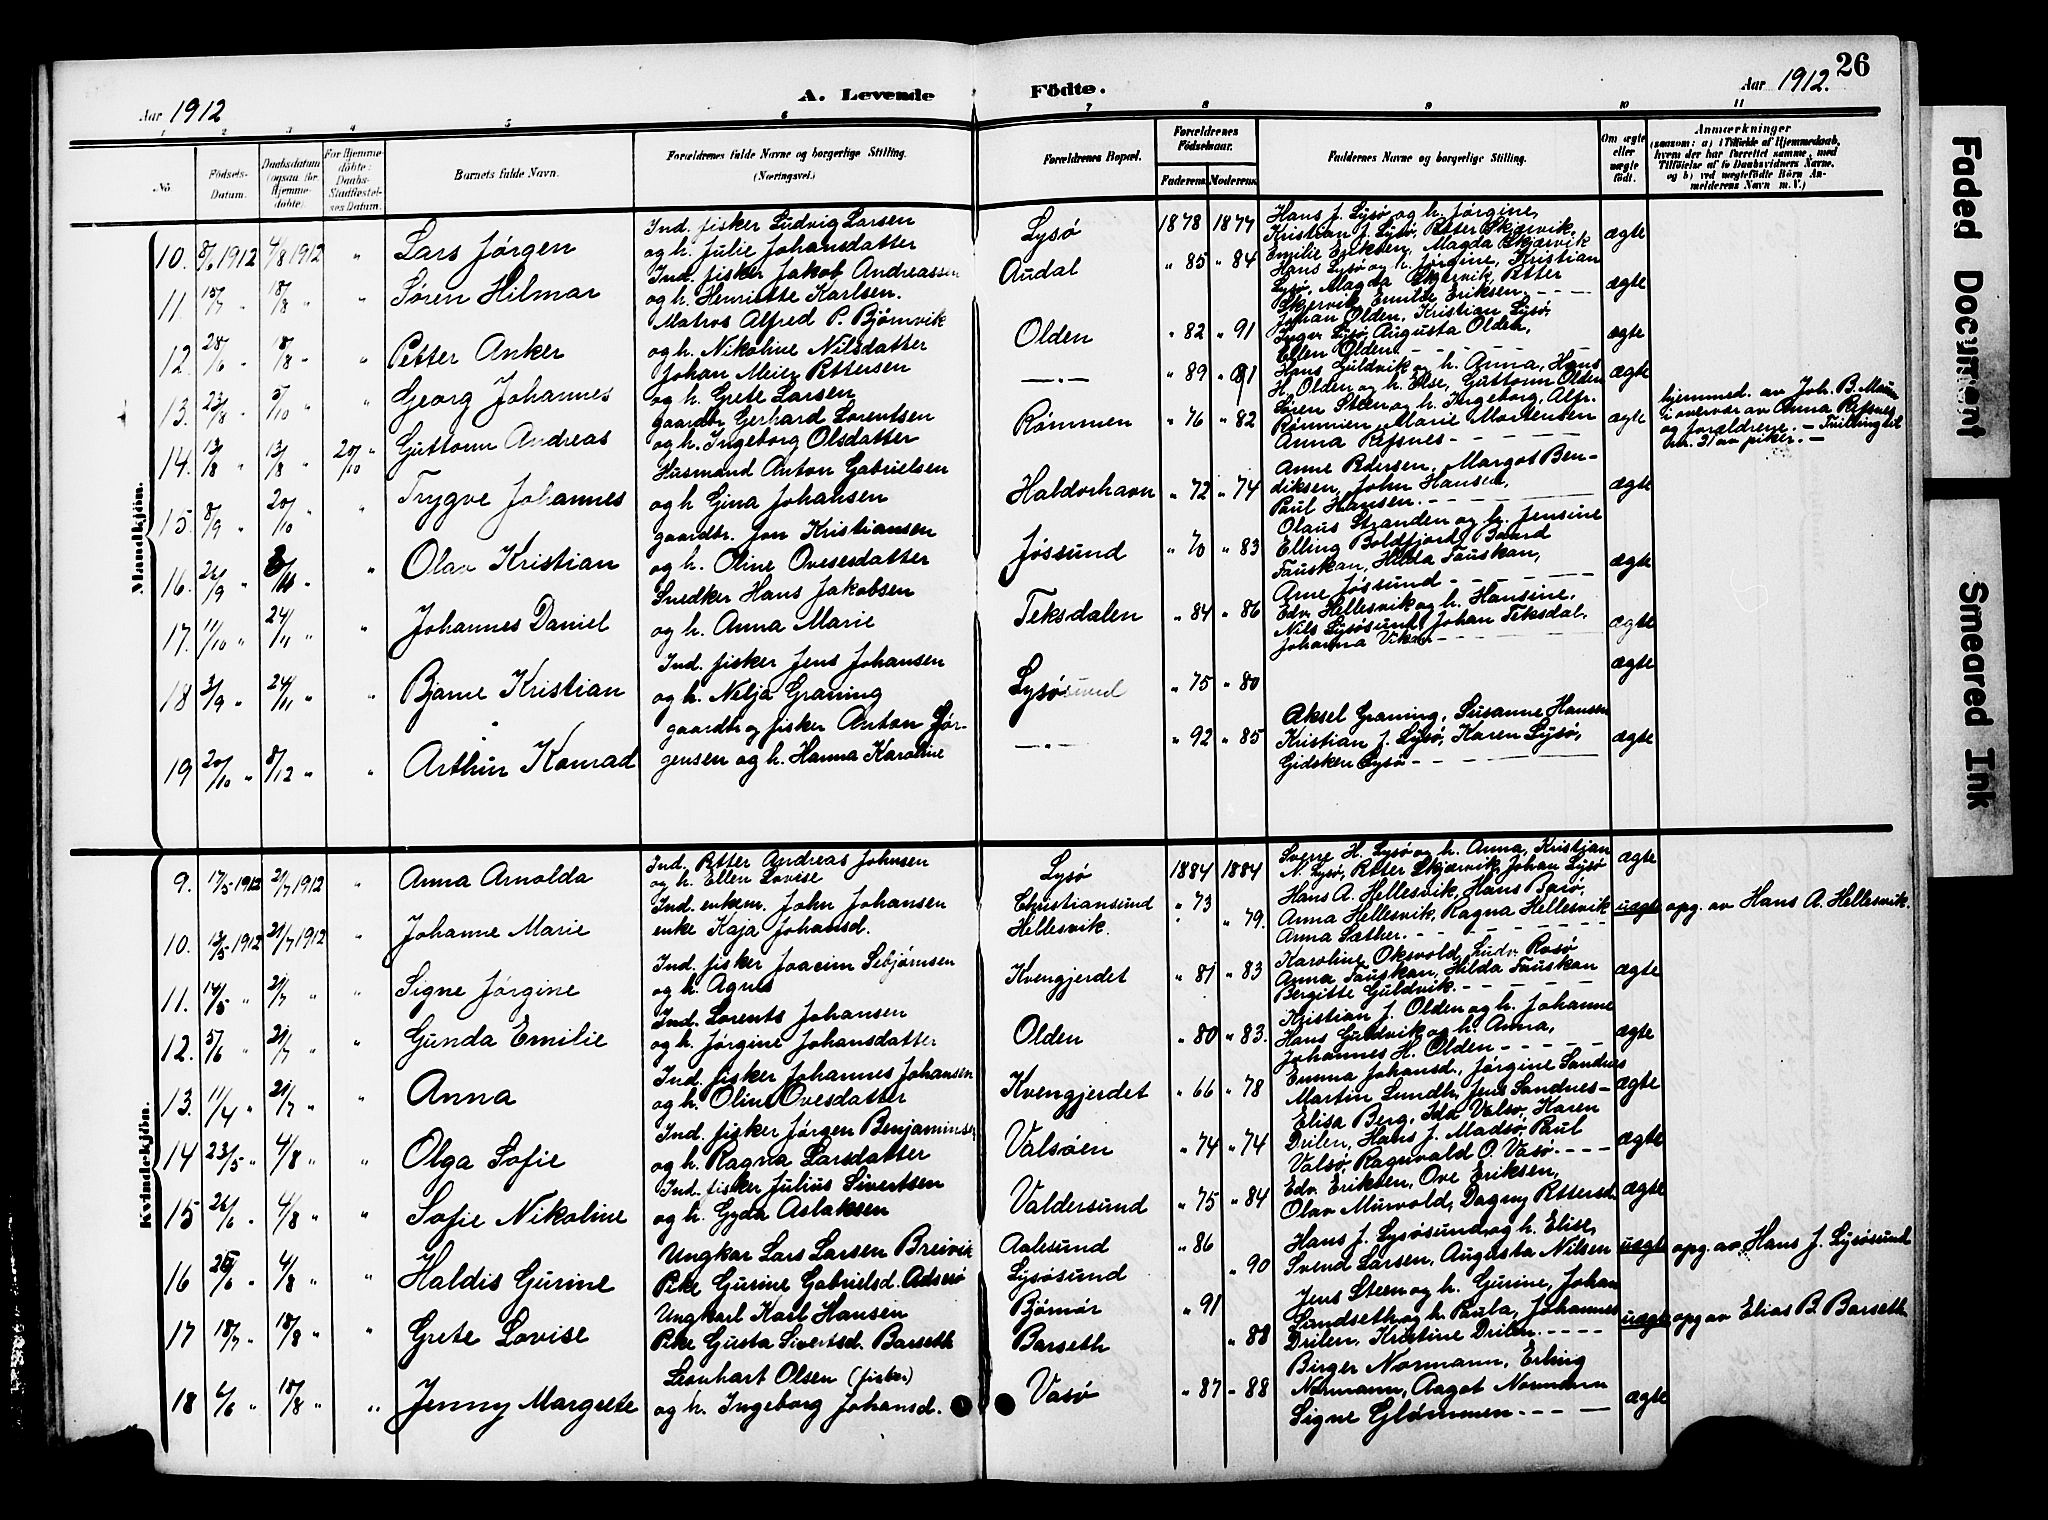 26
Aar 1912
A. Levende Födte.
Aar 1912.
1 2 3 4 5 6 7 8 9 10 11
No.
Födsels-
Datum.
Daabsdatum
(ogsaa for
Hjemme-
döbte).
For Hjemme-
döbte:
Daabs-
Stadfæstel-
ses Datum.
Barnets fulde Navn.
Forældrenes fulde Navne og borgerlige Stilling.
(Næringsvei.)
Forældrenes Bopæl.
Forældrenes
Födselsaar.
Faderens. Moderens.
Faddernes Navne og borgerlige Stilling.
Om ægte
eller
uægte
födt.
Anmærkninger
(saasom: a) i Tilfælde af Hjemmedaab,
hvem der har forrettet samme, med
Tilföielse af to Daabsvidners Navne,
og b) ved uægtefödte Börn An-
melderens Navn m. V.)
Mandkjön.
10. 8/6 1912 4/8 1912 " Lars Jørgen
Ind. fisker Ludvig Larsen
og h. Julie Johansdatter
Lysø 1878 1877
Hans J. Lysø og h. Jørgine,
Kristian J. Lysø, Petter Skjærvik,
Emilie Eriksen, Magda Skjærvik
ægte
11. 15/7 " 18/8 " " Søren Hilmar
Ind. fisker Jakob Andreassen
og h. Henriette Karlsen.
Audal " 85 " 84
Hans Lysø og h. Jørgine, Kristian
Lysø, Magda Skjervik, Petter
Skjervik, Emilie Eriksen.
ægte
12. 28/6 " 18/8 " " Petter Anker
Matros Alfred P. Bjørnvik
og h. Nikoline Nilsdatter
Olden " 82 " 91
Johan Olden, Kristian Lysø,
Inger Lysø, Augusta Olden,
Ellen Olden.
ægte
13. 23/8 " 5/10 " " Georg Johannes
Johan Meier Pettersen
og h. Grete Larsen
—"— " 89 " 91
Hans Guldvik og h. Anna, Hans
H. Olden og h. Else, Guttorm Olden
ægte
14. 13/8 " 13/8 " 20/10 " Guttorm Andreas
gaardbr. Gerhard Lorentsen
og h. Ingeborg Olsdatter
Rømmen " 76 " 82
Søren Steen og h. Ingeborg, Alfr.
Rømmen, Marie Mortensen
Anna Refsnes
ægte
hjemmed. av Joh. B. Moum
i overvær av Anna Refsnes
og forældrene. — Tvilling til
nr. 21 av piker. —
15. 8/9 " 20/10 " " Trygve Johannes
Husmand Anton Gabrielsen
og h. Gina Johansen
Haldorhavn " 72 " 74
Anne Pedersen, Margot Ben-
diksen, John Hansen,
Paul Hansen.
ægte
16. 26/9 " " Olav Kristian
gaardbr. Jon Kristiansen
og h. Oline Ovesesdatter
Jøssund " 70 " 83
Olaus Stranden og h. Jensine
Elling Boldfjord, Baard
Fauskan, Hilda Fauskan,
Arne Jøssund
ægte
17. 11/10 " 24/11 " " Johannes Daniel
Snedker Hans Jakobsen
og h. Anna Marie
Teksdalen " 84 " 86
Edv. Hellesvik og h. Hansine,
Nils Lysøsund, Johan Teksdal.
Johanna Vikan
ægte
18 3/9 " 24/11 " " Bjarne Kristian
Ind. fisker Jens Johansen
og h. Nelja Graning
Lysøsund " 75 " 80
ægte
19 20/10 " 8/12 " " Arthur Konrad
gaardbr og fisker Anton Jør-
gensen og h. Hanna Karoline
—"— " 92 " 85
Aksel Graning, Susanne Hansen
Kristian J. Lysø, Karen Lysø,
Gidsken Lysø
ægte
Kvindekjön.
9. 17/5 1912 21/7 1912 " Anna Arnolda
Ind. Petter Andreas Johnsen
og h. Ellen Lovise
Lysø 1884 1884
Sverre H. Lysø og h. Anna, Kristian
N. Lysø, Petter Skjærvik, Johan Lysø
ægte
10. 13/5 1912 21/7 1912 " Johanne Marie
Ind. enkem. John Johansen
enke Kaja Johansd.
Christiansund " 73
Hellesvik. " 79.
Hans A. Hellesvik, Hans Basø,
Anna Hellesvik, Ragna Hellesvik
Anna Sæther.
uægte opg. av Hans A. Hellesvik.
11. 14/5 " 21/7 " " Signe Jørgine
Ind. fisker Joacim Sebjørnsen
og h. Agnes
Kvengjerdet " 81 " 83
Karoline Oksvold, Ludv. Rosø
Anna Fauskan, Hilda Fauskan
Bergitte Guldvik.
ægte
12. 5/6 " 21/7 " " Gunda Emilie
Ind. Lorents Johansen
og h. Jørgine Johansdatter
Olden " 80 " 83.
Kristian J. Olden og h. Johanne
Hans Guldvik og h. Anna,
Johannes H. Olden
ægte
13. 11/4 " 21/7 " " Anna
Ind. fisker Johannes Johansen
og h. Oline Ovesdatter
Kvengjerdet " 66 " 78
Emma Johansd., Jørgine Sandnes
Martin Lundh, Jens Sandnes
ægte
14 23/5 " 4/8 " " Olga Sofie
Ind. fisker Jørgen Benjaminsen
og h. Ragna Larsdatter
Valsøen " 74 " 74
Elisa Berg, Ida Valsø, Karen
Drilen, Hans J. Madsø, Paul
Valsø, Ragnvald O. Vasø.
ægte
15 26/6 " 4/8 " " Sofie Nikoline
Ind. fisker Julius Sivertsen
og h. Gyda Aslaksen
Valdersund " 75 " 84
Edv. Eriksen, Ove Eriksen,
Olav Murvold, Dagny Pettersd.
ægte
16 28/6 " 4/8 " " Haldis Gurine
Ungkar Lars Larsen Breivik
Pike Gurine Gabrielsd. Adsesø
Aalesund " 86
Lysøsund " 90
Hans J. Lysøsund og h. Elise,
Svend Larsen, Augusta Nilsen
uægte opg. av Hans J. Lysøsund
17 18/7 " 18/8 " " Grete Lovise
Ungkarl Karl Hansen
Pike Gusta Sivertsd. Barseth
Bjørnør " 91
Barseth " 88
Jens Steen og h. Gurine, Johan
Sandseth og h. Paula, Johannes
Drilen, Kristine Drilen.
uægte opg av Elias B. Barseth
18 6/6 " 18/8 " " Jenny Margrete
Leonhart Olsen (fisker)
og h. Ingeborg Johansd.
Vasø " 87 " 88
Birger Normann, Erling
Normann, Aagot Normann
Signe Glømmen
ægte
Faded Document
Smeared Ink